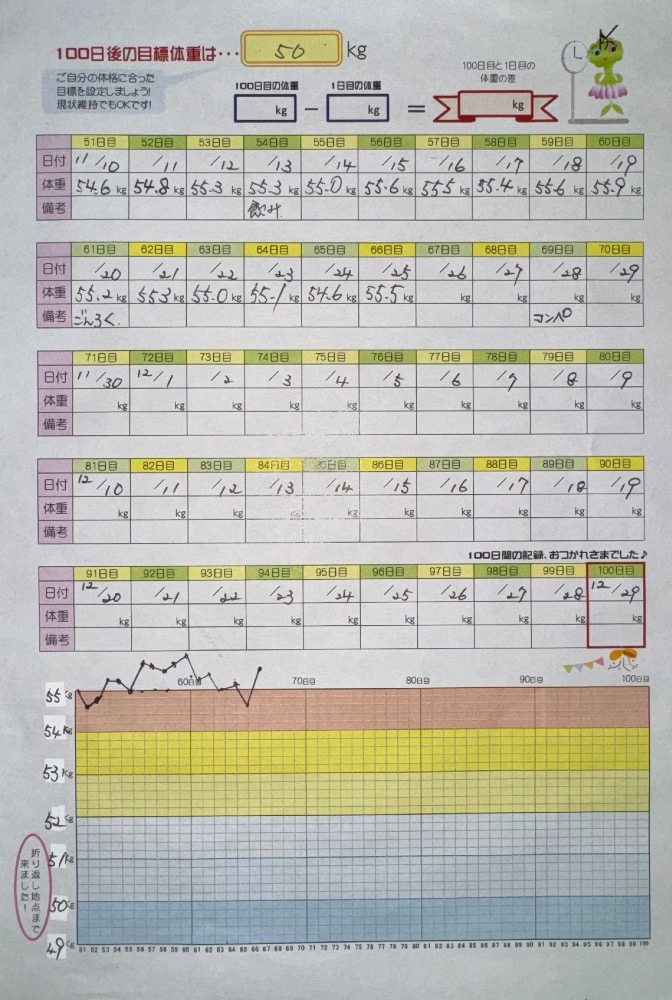 100日後の目標体重は・・・ 50 kg
ご自分の体格に合った
目標を設定しましょう!
現状維持でもOKです!
100日目の体重 1日目の体重
kg − kg = kg
100日目と1日目の
体重の差
L
51日目 52日目 53日目 54日目 55日目 56日目 57日目 58日目 59日目 60日目
日付 11/10 /11 /12 /13 /14 /15 /16 /17 /18 /19
体重 54.6kg 54.8kg 55.3kg 55.3kg 55.0kg 55.6kg 55.5kg 55.4kg 55.6kg 55.9kg
備考 飲み
61日目 62日目 63日目 64日目 65日目 66日目 67日目 68日目 69日目 70日目
日付 /20 /21 /22 /23 /24 /25 /26 /27 /28 /29
体重 55.2kg 55.3kg 55.0kg 55.1kg 54.6kg 55.5kg kg kg kg kg
備考 ごんろく コンペ
71日目 72日目 73日目 74日目 75日目 76日目 77日目 78日目 79日目 80日目
日付 11/30 12/1 /2 /3 /4 /5 /6 /7 /8 /9
体重 kg kg kg kg kg kg kg kg kg kg
備考
81日目 82日目 83日目 84日目 85日目 86日目 87日目 88日目 89日目 90日目
日付 12/10 /11 /12 /13 /14 /15 /16 /17 /18 /19
体重 kg kg kg kg kg kg kg kg kg kg
備考
100日間の記録、おつかれさまでした♪
91日目 92日目 93日目 94日目 95日目 96日目 97日目 98日目 99日目 100日目
日付 12/20 /21 /22 /23 /24 /25 /26 /27 /28 12/29
体重 kg kg kg kg kg kg kg kg kg kg
備考
60日目 70日目 80日目 90日目 100日目
55kg
54kg
53kg
52kg
51kg
50kg
49kg
折り返し地点まで
来ました!
51 52 53 54 55 56 57 58 59 60 61 62 63 64 65 66 67 68 69 70 71 72 73 74 75 76 77 78 79 80 81 82 83 84 85 86 87 88 89 90 91 92 93 94 95 96 97 98 99 100